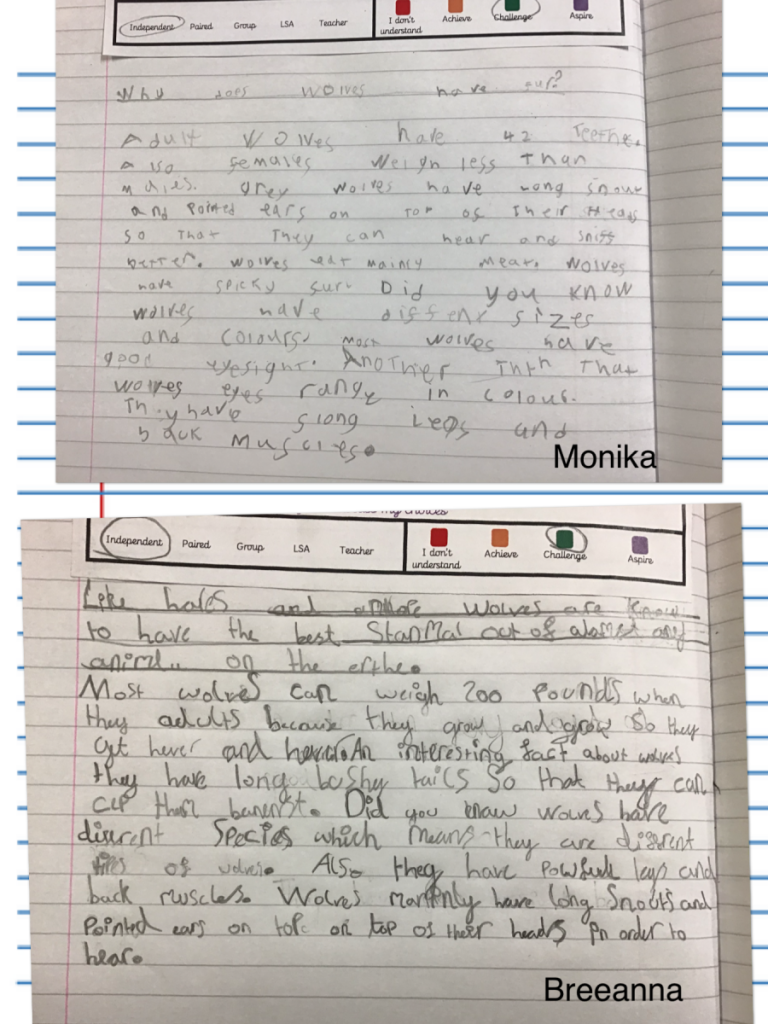 Independent Paired Group LSA Teacher I don't understand Achieve Challenge Aspire
Why does wolves have fur?
Adult wolves have 42 Teethe.
also females weigh less Than
males. grey wolves have long snout
and Pointed ears on Top of Their Heads
so That They can hear and sniff
better. wolves eat mainly meat. wolves
have spicky fur. Did you know
wolves have diffent sizes
and colours. most wolves have
good eyesight. Another That
wolves eyes range in colour.
They have slong legs and
back muscles.
Monika
my choices
Independent Paired Group LSA Teacher I don't understand Achieve Challenge Aspire
and wolves are know
to have the best out of alomst any
on the erthe.
Most wolves can weigh 200 pounds when
they adults because they grow and grow so they
get hever and hevier. An interesting fact about wolves
they have long bushy tails so that they can
Did you know wolves have
disrent species which means they are disrent
of wolves. Also they have powfull legs and
back muscles. Wolves have long snouts and
pointed ears on top on top of their heads in order to
hear.
Breeanna